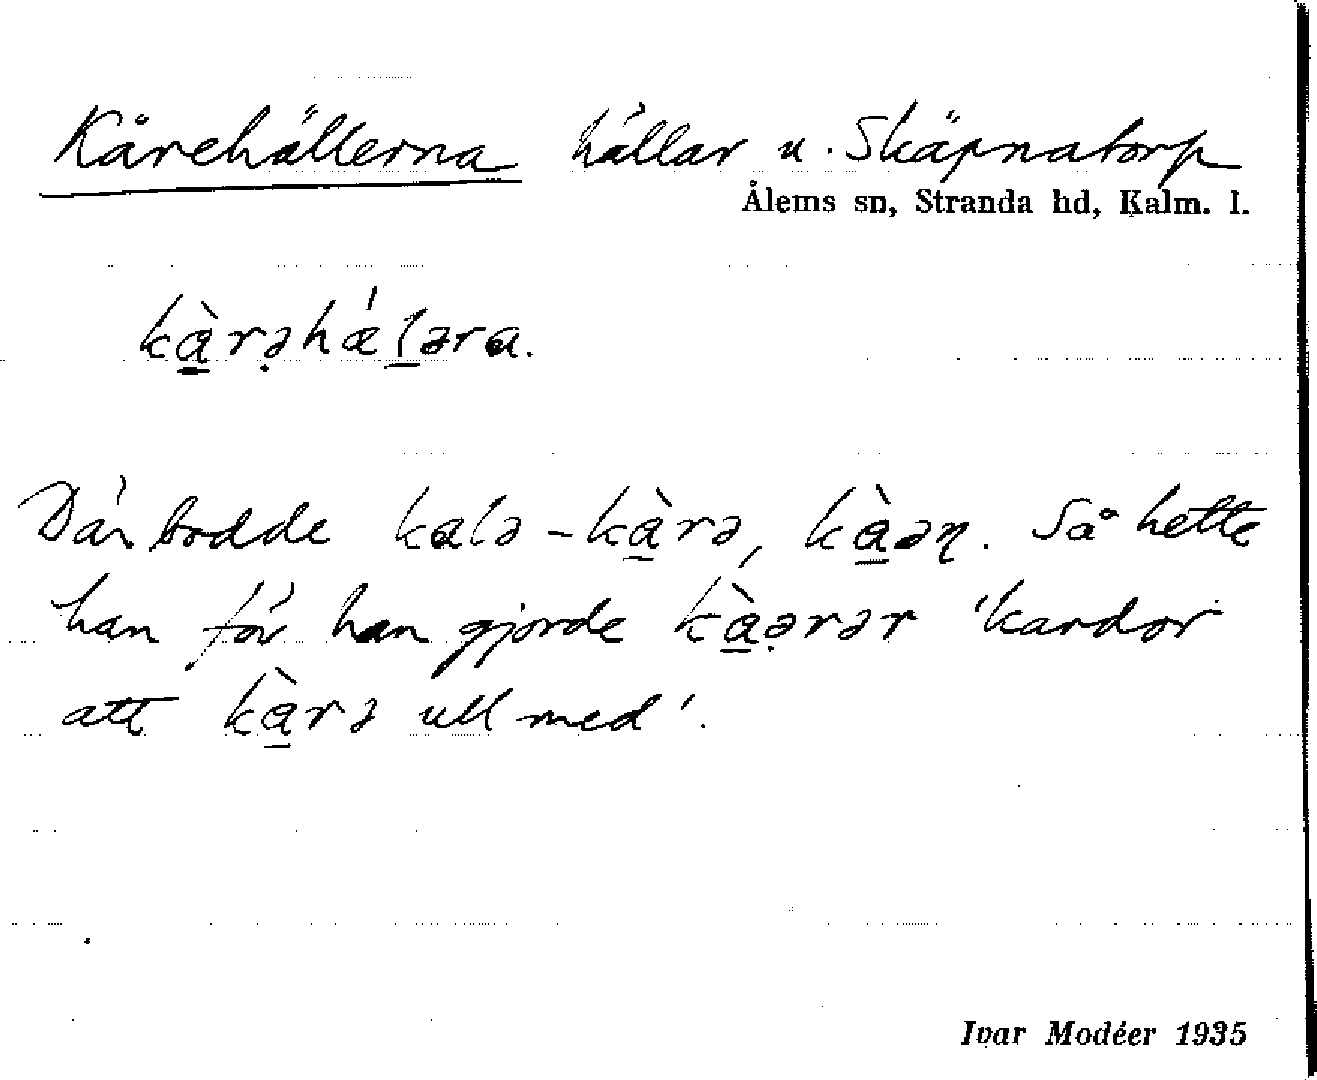 Kårehällerna hällar u. Skäpnatorp
Ålems sn, Stranda hd, Kalm. l.
kàrəhǽləra.
Där bodde kalə-kàrə, kàəɳ. Så hette
han för han gjorde kàərər 'kardor
att kàrə ull med'.
Ivar Modéer 1935